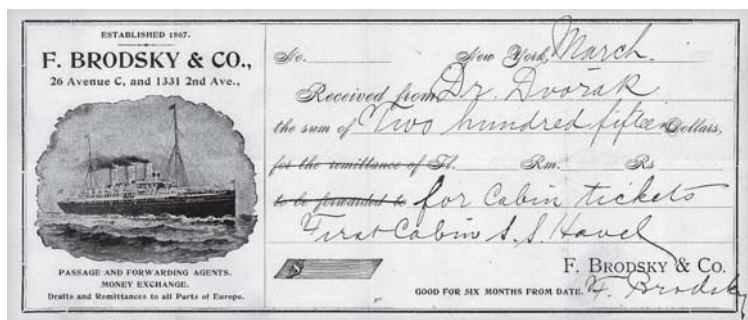 ESTABLISHED 1867.
F. BRODSKY & CO.,
26 Avenue C, and 1331 2nd Ave.,
PASSAGE AND FORWARDING AGENTS.
MONEY EXCHANGE.
Drafts and Remittances to all Parts of Europe.
No. New York, March.
Received from Dr. Dvořák
the sum of Two hundred fifteen Dollars,
for the remittance of Fl. Rm. Rs
to be forwarded to for Cabin tickets
First Cabin S.S. Havel
$
F. BRODSKY & CO.
GOOD FOR SIX MONTHS FROM DATE. F. Brodsky